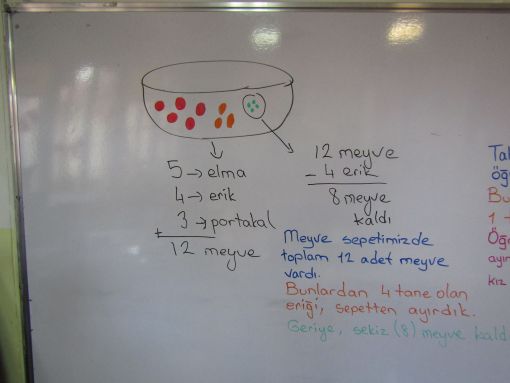 5 → elma
4 → erik
+ 3 → portakal
12 meyve
12 meyve
- 4 erik
8 meyve
kaldı
Meyve sepetimizde
toplam 12 adet meyve
vardı.
Bunlardan 4 tane olan
eriği, sepetten ayırdık.
Geriye, sekiz (8) meyve kald